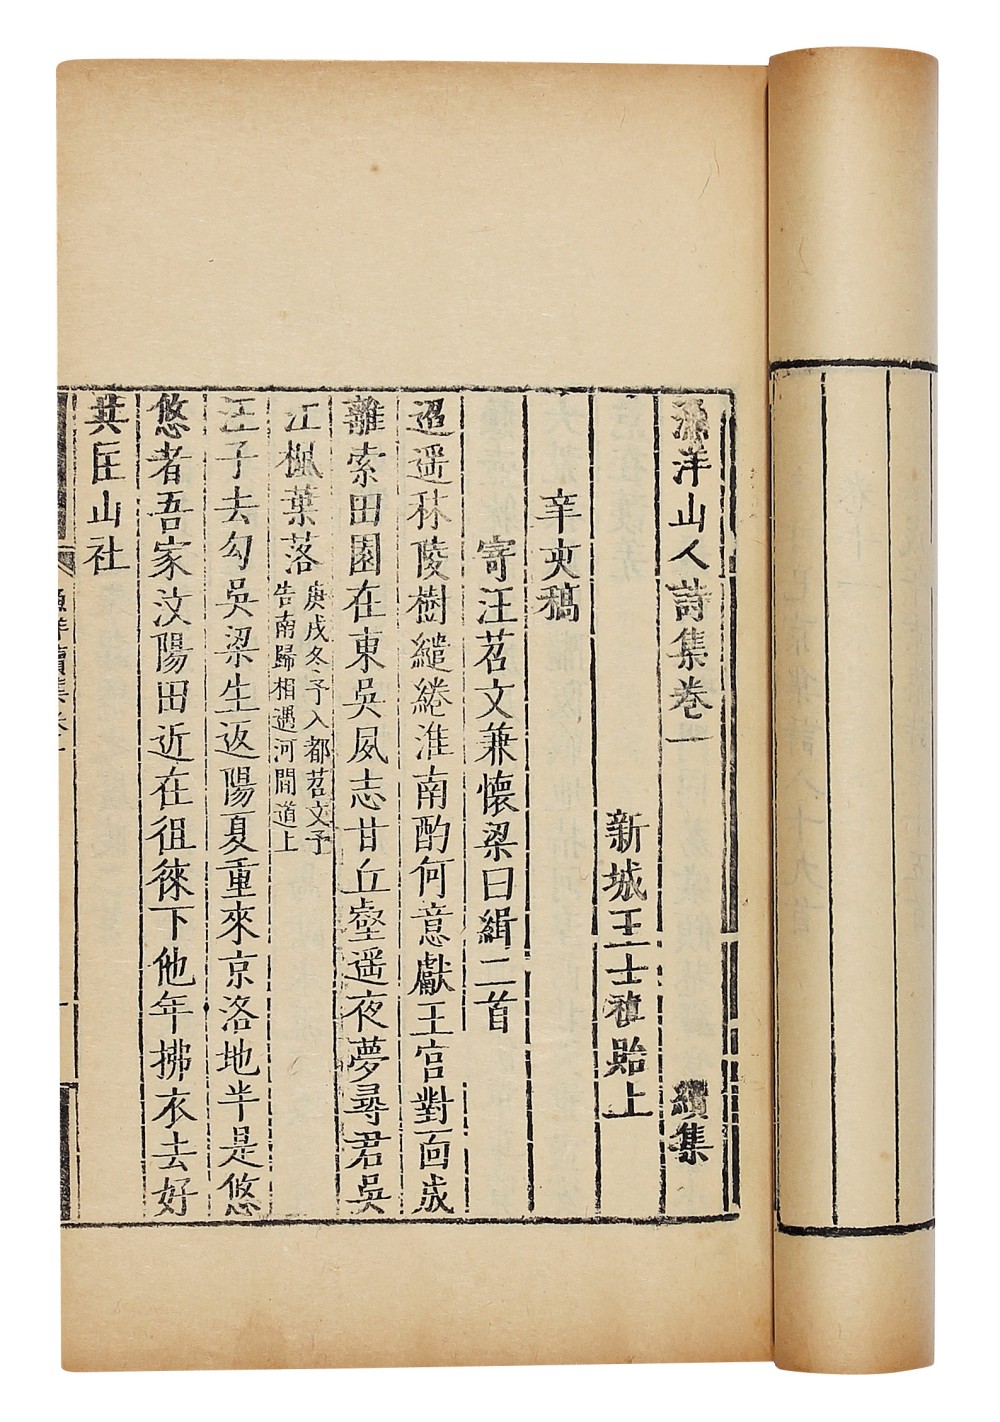 漁洋山人詩集卷一　續集
新城王士禛貽上
辛亥稿
寄汪苕文兼懷梁曰緝二首
迢遥秣陵樹繾綣淮南酌何意獻王宮對面成
離索田園在東吳夙志甘丘壑遥夜夢尋君吳
江楓葉落
庚戌冬予入都苕文予
告南歸相遇河間道上
汪子去勾吳梁生返陽夏重來京洛地半是悠
悠者吾家汶陽田近在徂徠下他年拂衣去好
共匡山社
漁洋續集卷一